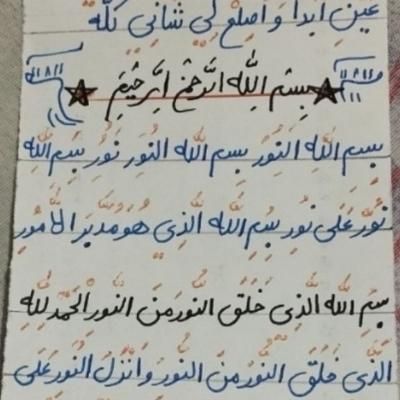 عين ابدا و اصلح لي شاني كله
بسم الله الرحمن الرحيم
بسم الله النور بسم الله النور نور بسم الله
نور على نور بسم الله الذي هو مدبر الامور
بسم الله الذي خلق النور من النور الحمد لله
الذي خلق النور من النور وانزل النور على